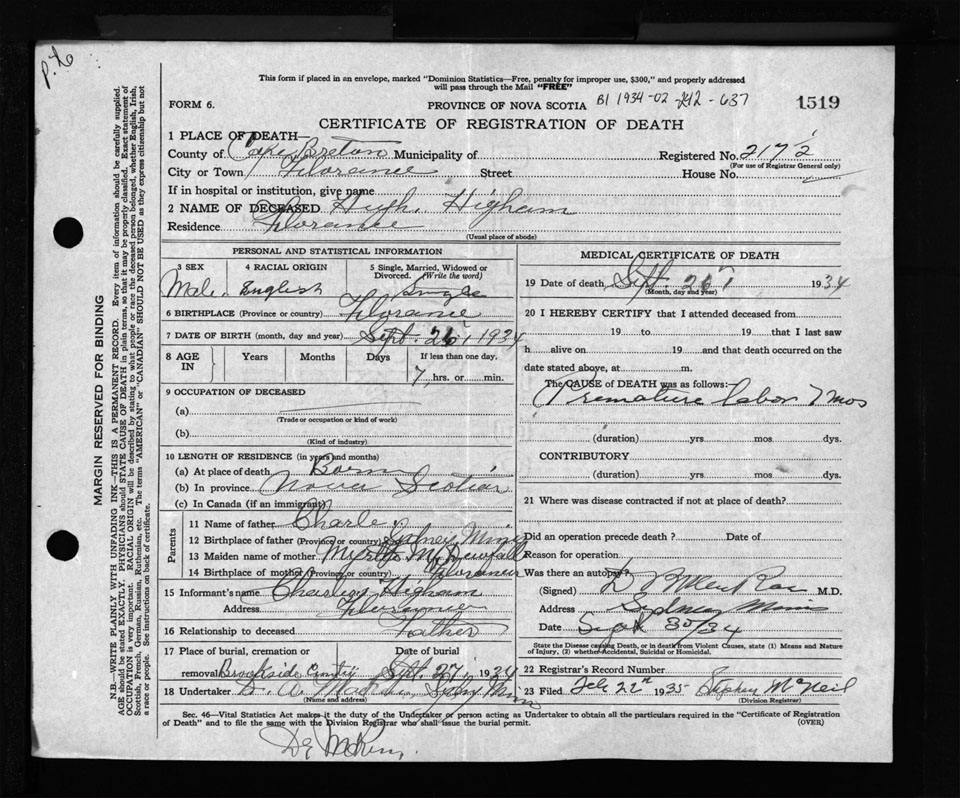 P.L.
This form if placed in an envelope, marked "Dominion Statistics—Free, penalty for improper use, $300," and properly addressed
will pass through the Mail "FREE"
FORM 6.
PROVINCE OF NOVA SCOTIA
B1 1934-02-242-637
1519
CERTIFICATE OF REGISTRATION OF DEATH
1 PLACE OF DEATH—
County of Cape Breton Municipality of
Registered No. 2172
(For use of Registrar General only)
City or Town Florance Street House No.
If in hospital or institution, give name
2 NAME OF DECEASED Hugh Higham
Residence Florance
(Usual place of abode)
PERSONAL AND STATISTICAL INFORMATION
3 SEX Male
4 RACIAL ORIGIN English
5 Single, Married, Widowed or Divorced. (Write the word) Single
6 BIRTHPLACE (Province or country) Florance
7 DATE OF BIRTH (month, day and year) Sept. 26 1934
8 AGE IN Years Months Days If less than one day. 7 hrs. or min.
9 OCCUPATION OF DECEASED
(a)
(Trade or occupation or kind of work)
(b)
(Kind of industry)
10 LENGTH OF RESIDENCE (in years and months)
(a) At place of death Born
(b) In province Nova Scotia
(c) In Canada (if an immigrant)
Parents
11 Name of father Charle
12 Birthplace of father (Province or country) Sydney Mines
13 Maiden name of mother Myrtle M.
14 Birthplace of mother (Province or country) Florance
15 Informant's name Charley Higham
Address Florance
16 Relationship to deceased Father
17 Place of burial, cremation or removal Brookside Date of burial Sept. 27 1934
18 Undertaker Sydney Mines
(Name and address)
MEDICAL CERTIFICATE OF DEATH
19 Date of death Sept. 26 1934
(Month, day and year)
20 I HEREBY CERTIFY that I attended deceased from
19 to 19 that I last saw
h alive on 19 and that death occurred on the
date stated above, at m.
The CAUSE OF DEATH was as follows:
Premature labor 7 mos
(duration) yrs. mos. dys.
CONTRIBUTORY
(duration) yrs. mos. dys.
21 Where was disease contracted if not at place of death?
Did an operation precede death? Date of
Reason for operation
Was there an autopsy?
(Signed) M.D.
Address Sydney Mines
Date Sept 30/34
State the Disease causing Death, or in death from Violent Causes, state (1) Means and Nature
of Injury, (2) whether Accidental, Suicidal or Homicidal.
22 Registrar's Record Number
23 Filed Feb 22nd 1935 Stephen McNeil
(Division Registrar)
Sec. 46—Vital Statistics Act makes it the duty of the Undertaker or person acting as Undertaker to obtain all the particulars required in the "Certificate of Registration
of Death" and to file the same with the Division Registrar who shall issue the burial permit.
(OVER)
MARGIN RESERVED FOR BINDING
N.B.—WRITE PLAINLY WITH UNFADING INK—THIS IS A PERMANENT RECORD. Every item of information should be carefully supplied.
AGE should be stated EXACTLY. PHYSICIANS should STATE CAUSE OF DEATH in plain terms, so that it may be properly classified. Exact statement of
OCCUPATION is very important. RACIAL ORIGIN will be described by stating to what people or race the deceased person belonged, whether English, Irish,
Scottish, French, German, Russian, Ruthenian, etc. The terms "AMERICAN" or "CANADIAN" SHOULD NOT BE USED as they express citizenship but not
a race or people. See instructions on back of certificate.